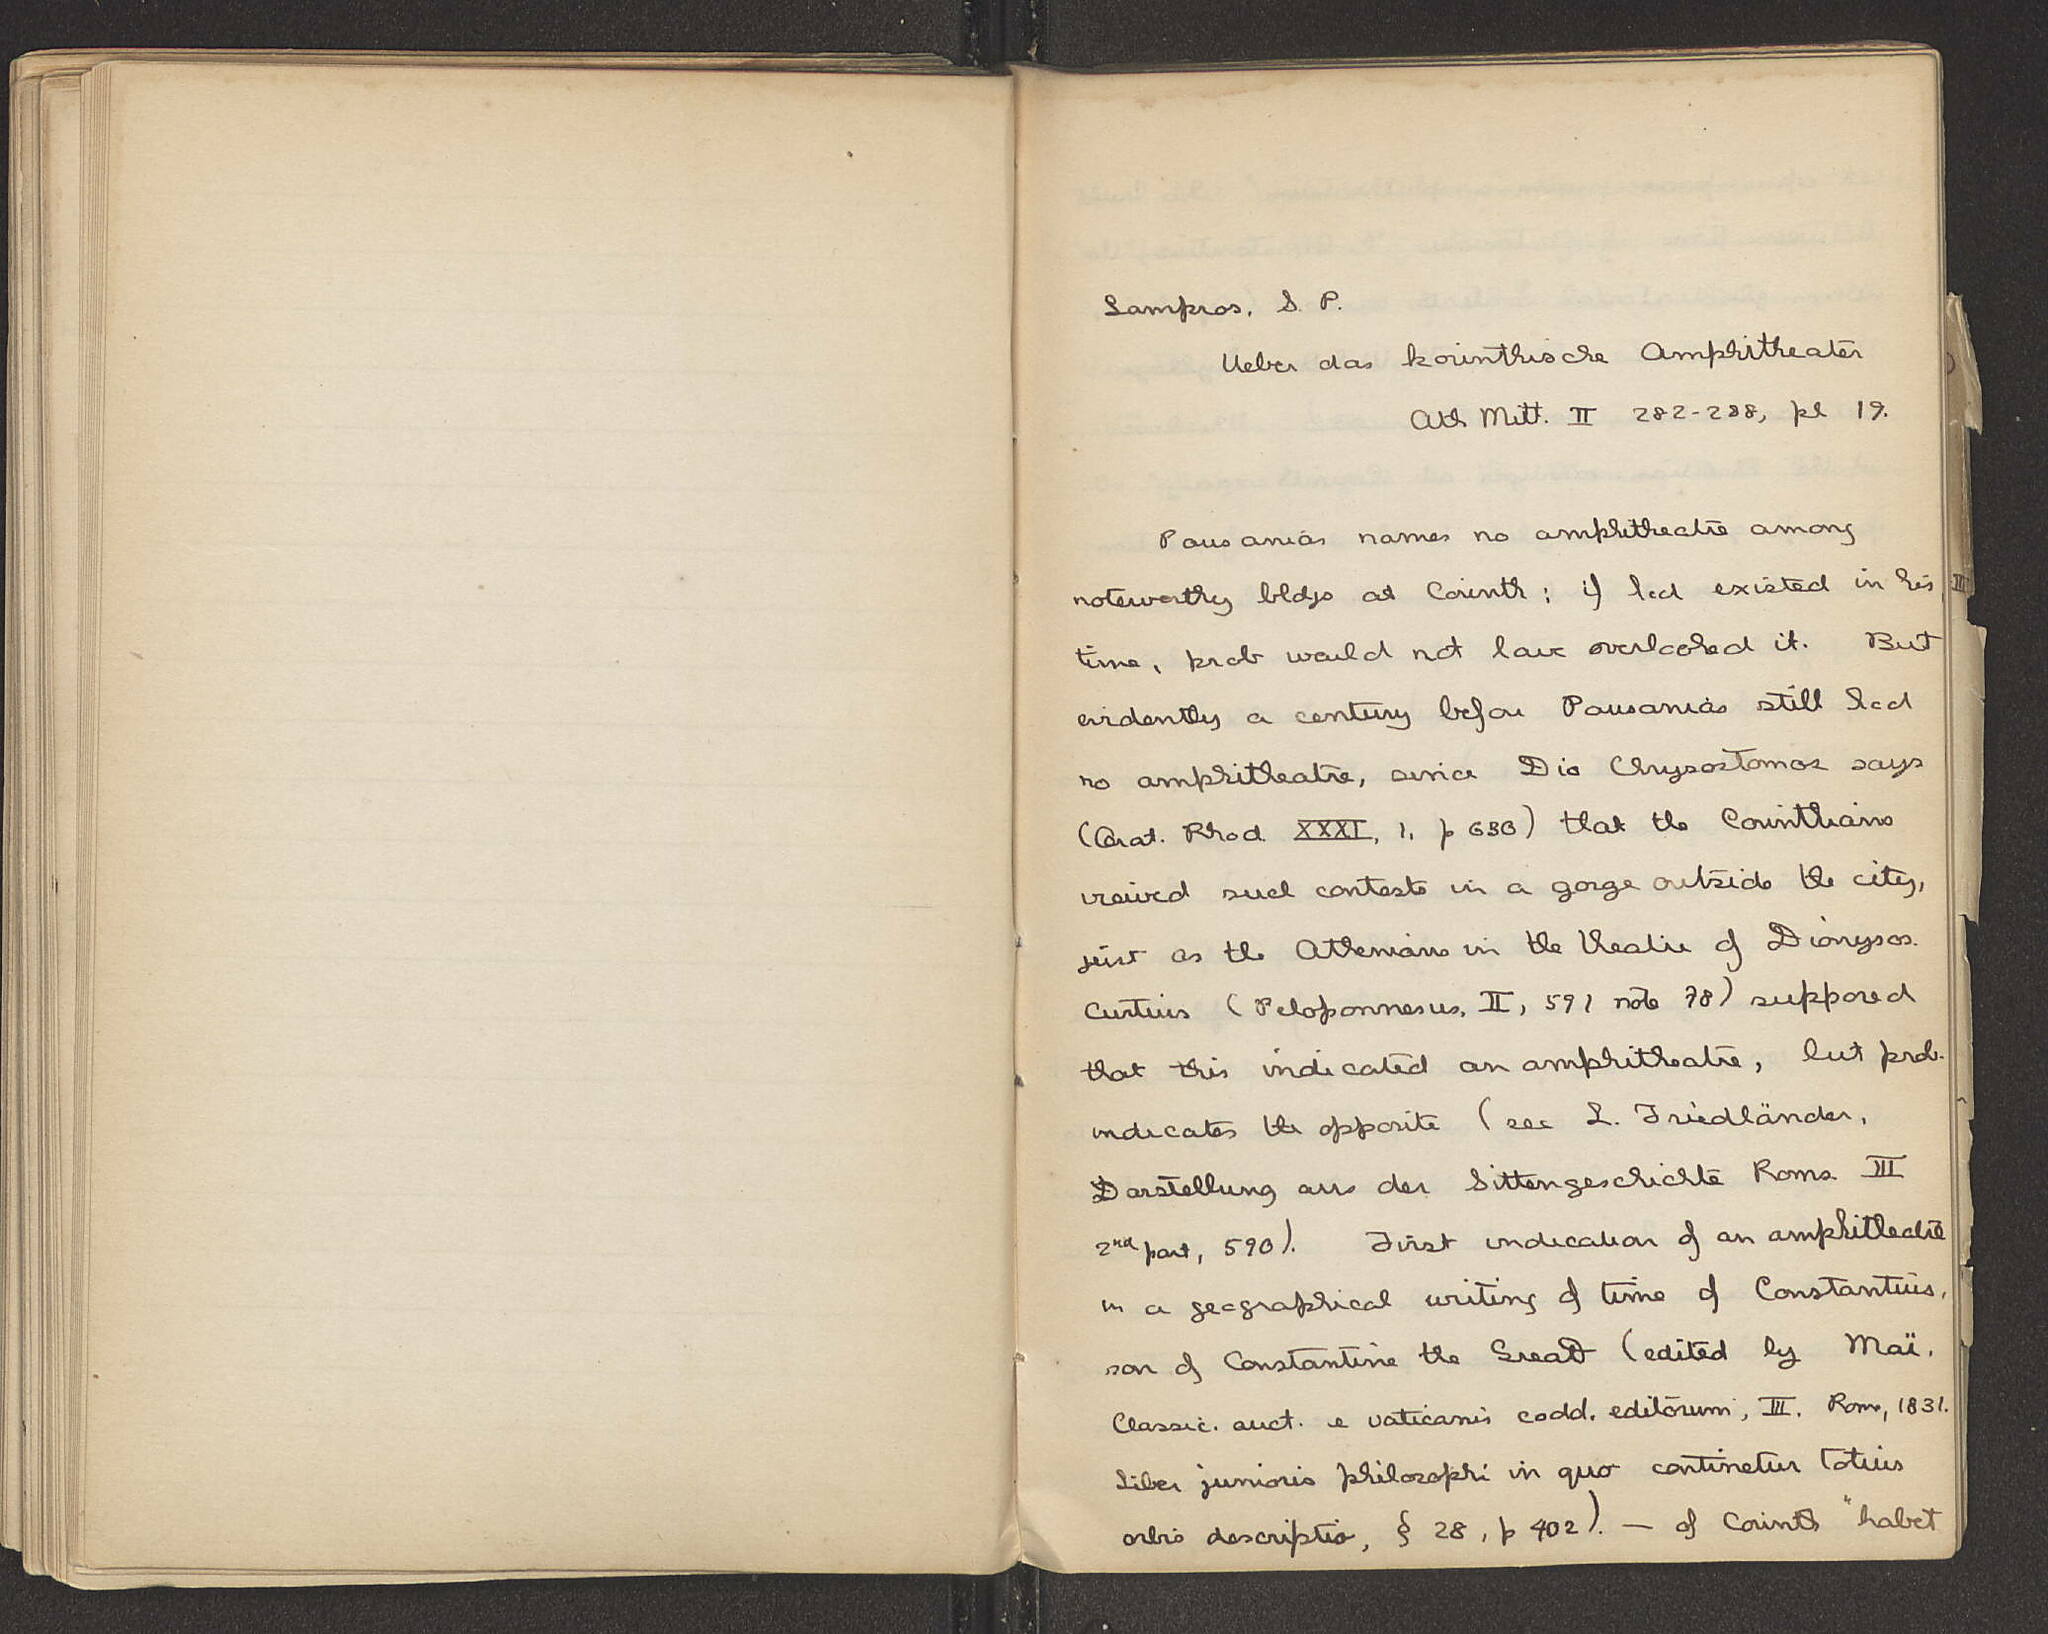 Lampros, S. P.
Ueber das korinthische Amphitheater
Ath Mitt. II 282-288, pl 19.
Pausanias names no amphitheatre among
noteworthy bldgs at Corinth; if had existed in his
time, prob would not have overlooked it. But
evidently a century before Pausanias still had
no amphitheatre, since Dio Chrysostomos says
(Orat. Rhod XXXI, 1, p 630) that the Corinthians
viewed such contests in a gorge outside the city,
just as the Athenians in the theatre of Dionysos.
Curtius (Peloponnesus, II, 591 note 78) supposed
that this indicated an amphitheatre, but prob.
indicates the opposite (see L. Friedländer,
Darstellung aus der Sittengeschichte Roms III
2nd part, 590). First indication of an amphitheatre
in a geographical writing of time of Constantius,
son of Constantine the Great (edited by Maï,
Classic. auct. e vaticanis codd. editorum, III. Rome, 1831.
Liber junioris philosophi in quo continetur totius
orbis descriptio, § 28, p 402). — of Corinth "habet
III